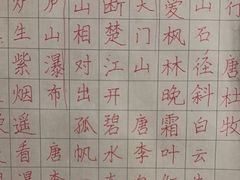 行唐杜牧
山石径斜白云
爱枫林晚霜叶
天门山唐李
断楚江开碧水
山相对出孤帆
庐山瀑布唐
炉生紫烟遥看